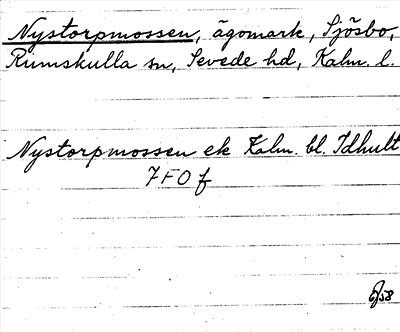 Nystorpmossen, ägomark, Sjösbo,
Rumskulla sn, Sevede hd, Kalm. l.
Nystorpmossen ek Kalm. bl. Idhult
7F0f
58